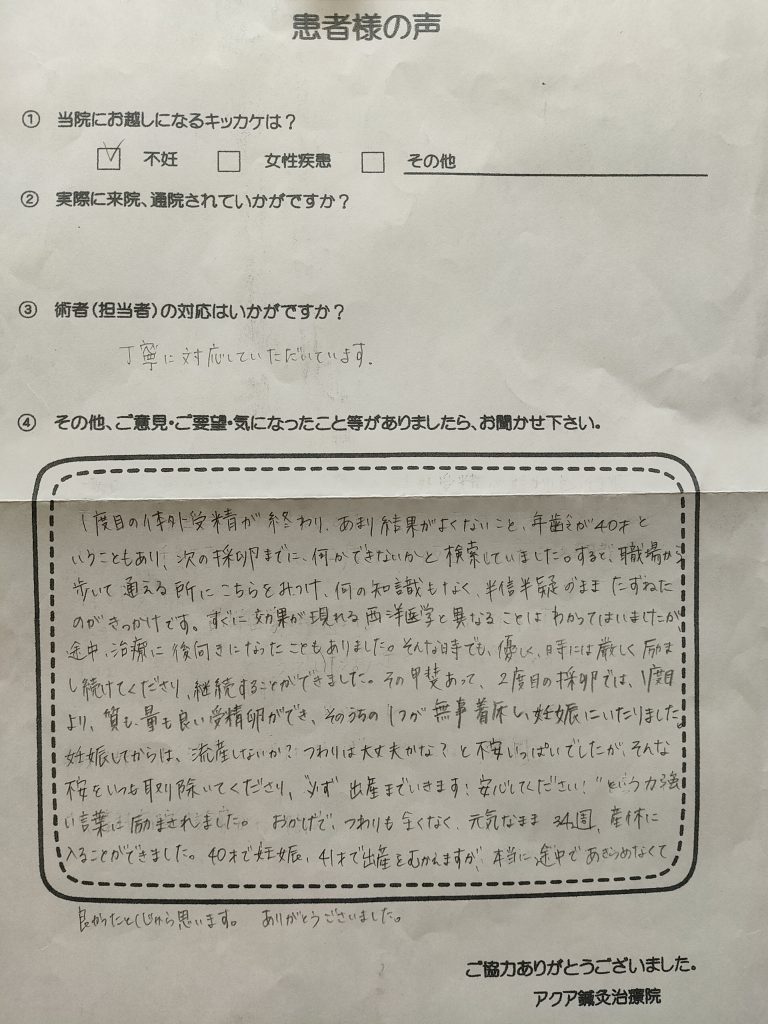 患者様の声
① 当院にお越しになるキッカケは？
☑ 不妊 □ 女性疾患 □ その他
② 実際に来院、通院されていかがですか？
③ 術者（担当者）の対応はいかがですか？
丁寧に対応していただいています。
④ その他、ご意見・ご要望・気になったこと等がありましたら、お聞かせ下さい。
1度目の体外受精が終わり、あまり結果がよくないこと、年齢が40才と
いうこともあり、次の採卵までに、何かできないかと検索していました。すると、職場から
歩いて通える所にこちらをみつけ、何の知識もなく、半信半疑のままたずねた
のがきっかけです。すぐに効果が現れる西洋医学と異なることはわかってはいましたが
途中、治療に後向きになったこともありました。そんな時でも、優しく、時には厳しく励ま
し続けてくださり、継続することができました。その甲斐あって、2度目の採卵では、1度目
より、質も量も良い受精卵ができ、そのうちの1つが無事着床し、妊娠にいたりました。
妊娠してからは、流産しないか？つわりは大丈夫かな？と不安いっぱいでしたが、そんな
不安をいつも取り除いてくださり、“必ず出産までいきます！安心してください！”という力強
い言葉に励まされました。おかげで、つわりも全くなく、元気なまま34週、産休に
入ることができました。40才で妊娠、41才で出産をむかえますが、本当に途中であきらめなくて
良かったと心から思います。ありがとうございました。
ご協力ありがとうございました。
アクア鍼灸治療院